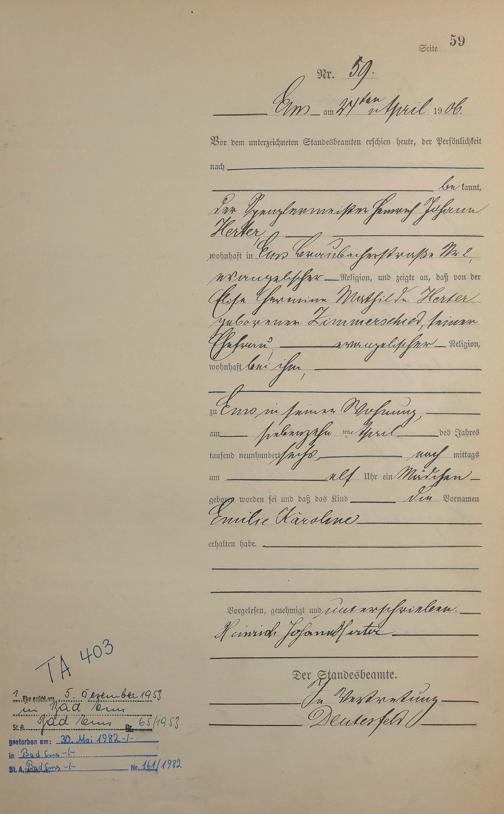 Seite 59
Nr. 59.
Ems am 24ten April 1906.
Vor dem unterzeichneten Standesbeamten erschien heute, der Persönlichkeit
nach
be kannt,
der Spenglermeister Heinrich Johann
Herter
wohnhaft in Ems Braubacherstraße
evangelischer Religion, und zeigte an, daß von der
Elise Hermine Mathilde Herter
geborenen Zimmerschied, seiner
Ehefrau, evangelischer Religion,
wohnhaft bei ihm,
zu Ems in seiner Wohnung,
am siebenzehn ten April des Jahres
tausend neunhundert sechs nach mittags
um elf Uhr ein Mädchen
geboren worden sei und daß das Kind die Vornamen
Emilie Karoline
erhalten habe.
Vorgelesen, genehmigt und unterschrieben.
Heinrich Johann Herter
Der Standesbeamte.
In Vertretung
TA 403
1. Eheschl. am 5. Dezember 1953
in Bad Ems
St. A. Bad Ems Nr. 65/1953
gestorben am: 30. Mai 1982 -/-
in Bad Ems -/-
St. A. Bad Ems -/- Nr. 161/1982